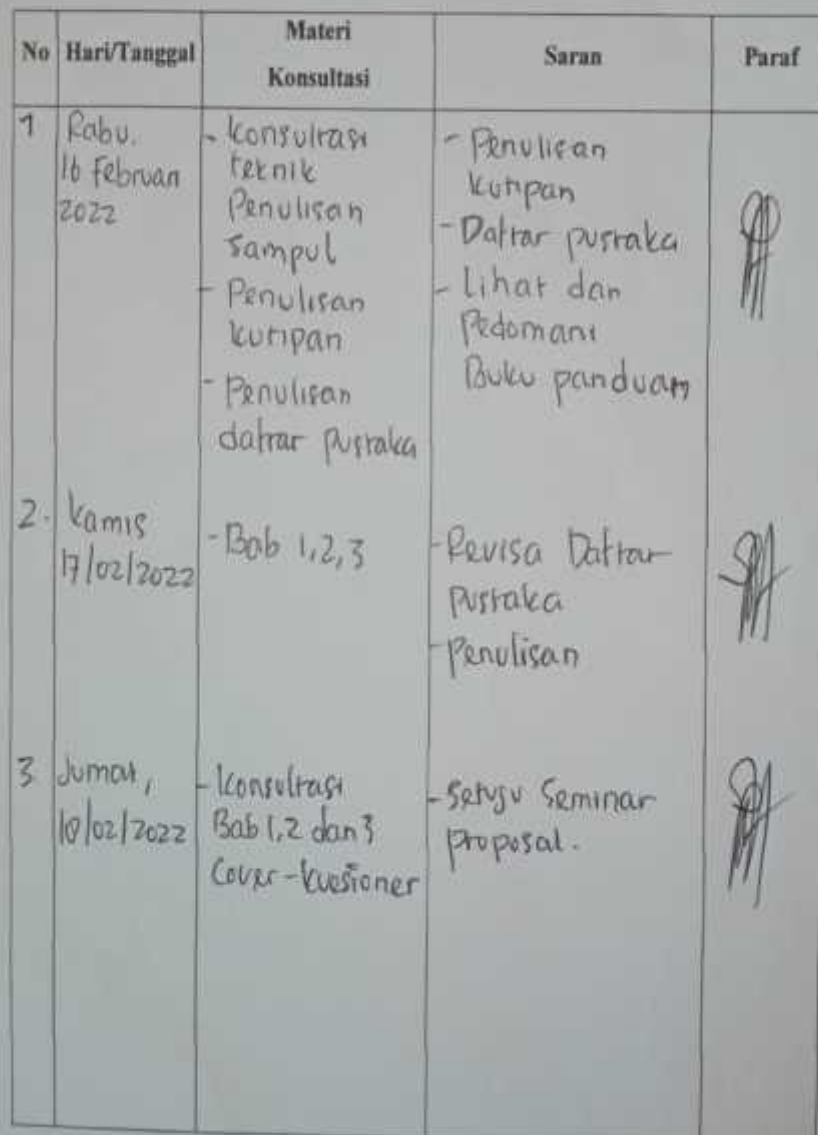 No Hari/Tanggal Materi Konsultasi Saran Paraf
1
Rabu,
16 Februari
2022
- Konsultasi
teknik
Penulisan
Sampul
- Penulisan
kutipan
- Penulisan
daftar pustaka
- Penulisan
kutipan
- Daftar pustaka
- Lihat dan
Pedomani
Buku panduan
2.
Kamis
17/02/2022
- Bab 1,2,3
- Revisa Daftar
Pustaka
- Penulisan
3
Jumat,
18/02/2022
- Konsultasi
Bab 1,2 dan 3
Cover - kuesioner
- Setuju Seminar
proposal.